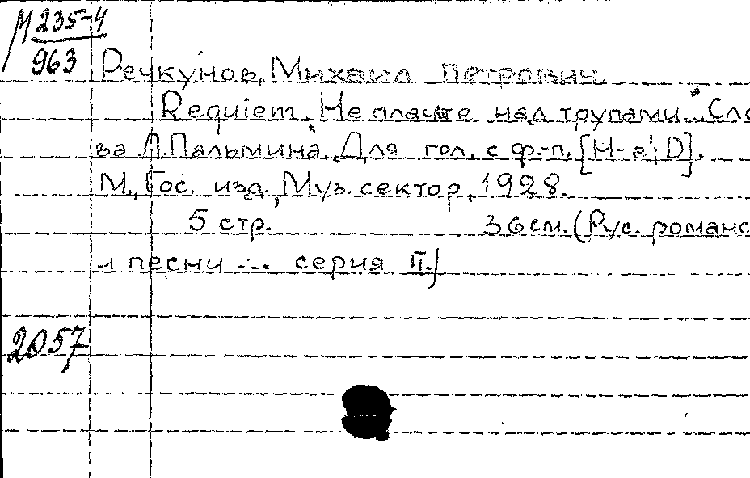 М 235-4
963
Речкунов, Михаил Петрович
Requiem. Не плачьте над трупами... Сло
ва Л. Пальмина. Для гол. с ф.-п. [H-e; D].
М., Гос. изд., Муз. сектор, 1928.
5 стр. 36 см. (Рус. романс
и песни ... серия II.)
2057